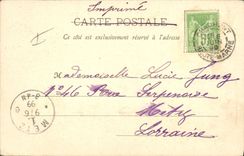 Imprimé
CARTE POSTALE
Ce côté est exclusivement réservé à l'adresse
Mademoiselle Lucie Jung
N° 46 Rue Serpenoise
Metz
Lorraine
METZ
99
HAUTE MARNE